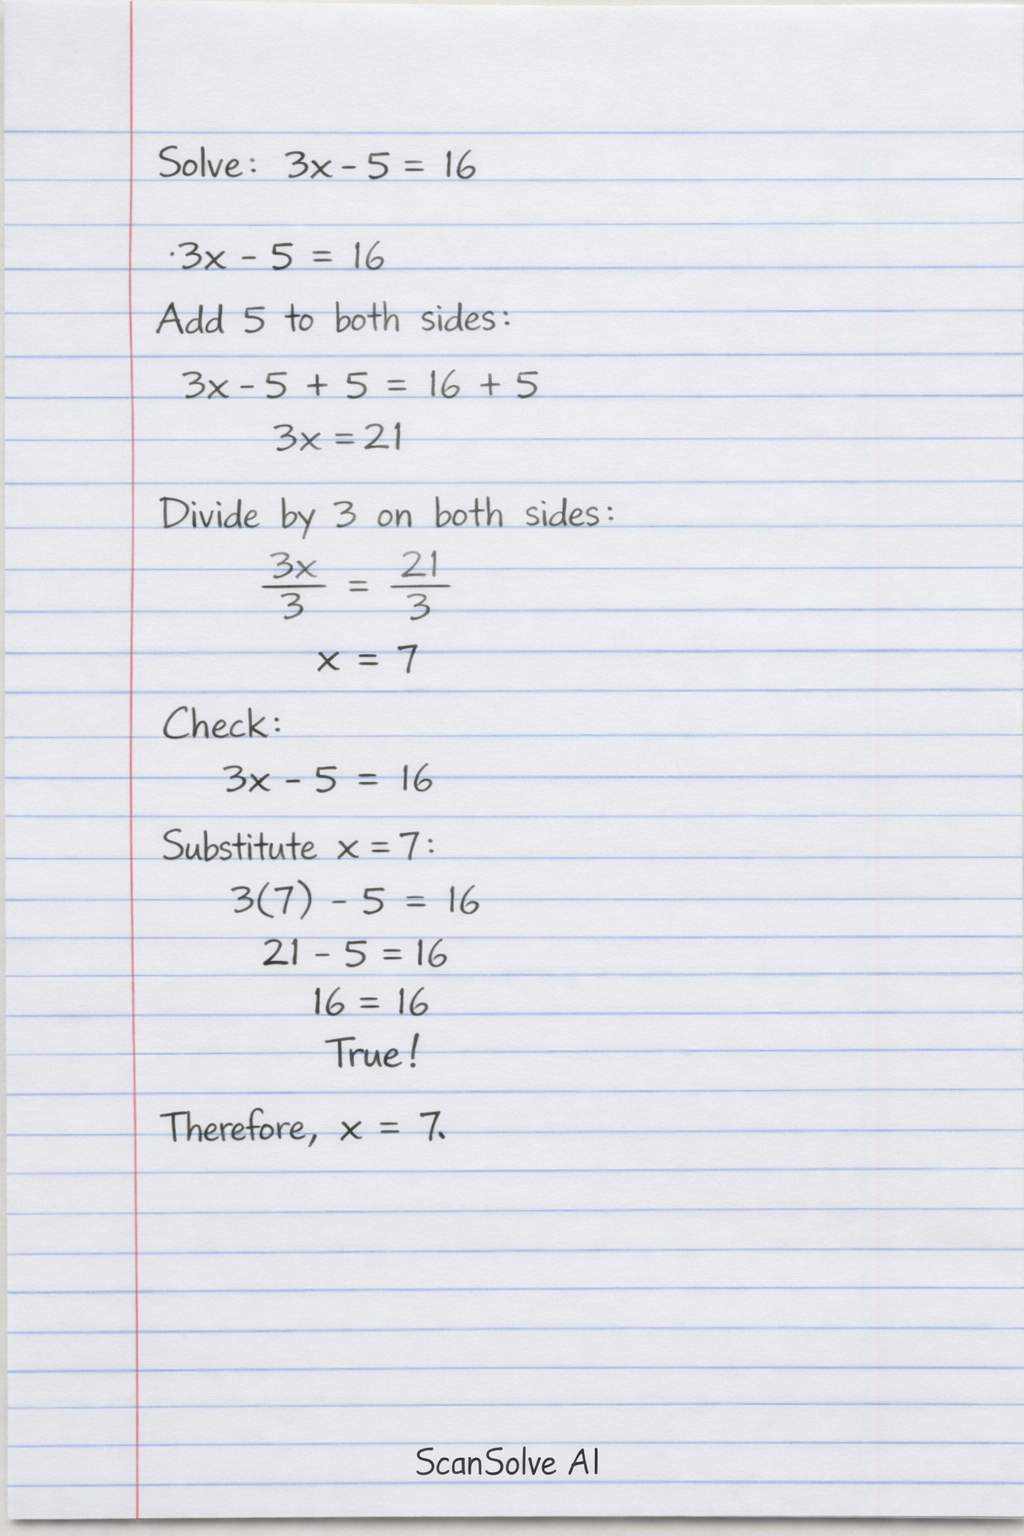 Solve: 3x - 5 = 16
·3x - 5 = 16
Add 5 to both sides:
3x - 5 + 5 = 16 + 5
3x = 21
Divide by 3 on both sides:
3x/3 = 21/3
x = 7
Check:
3x - 5 = 16
Substitute x = 7:
3(7) - 5 = 16
21 - 5 = 16
16 = 16
True!
Therefore, x = 7.
ScanSolve AI